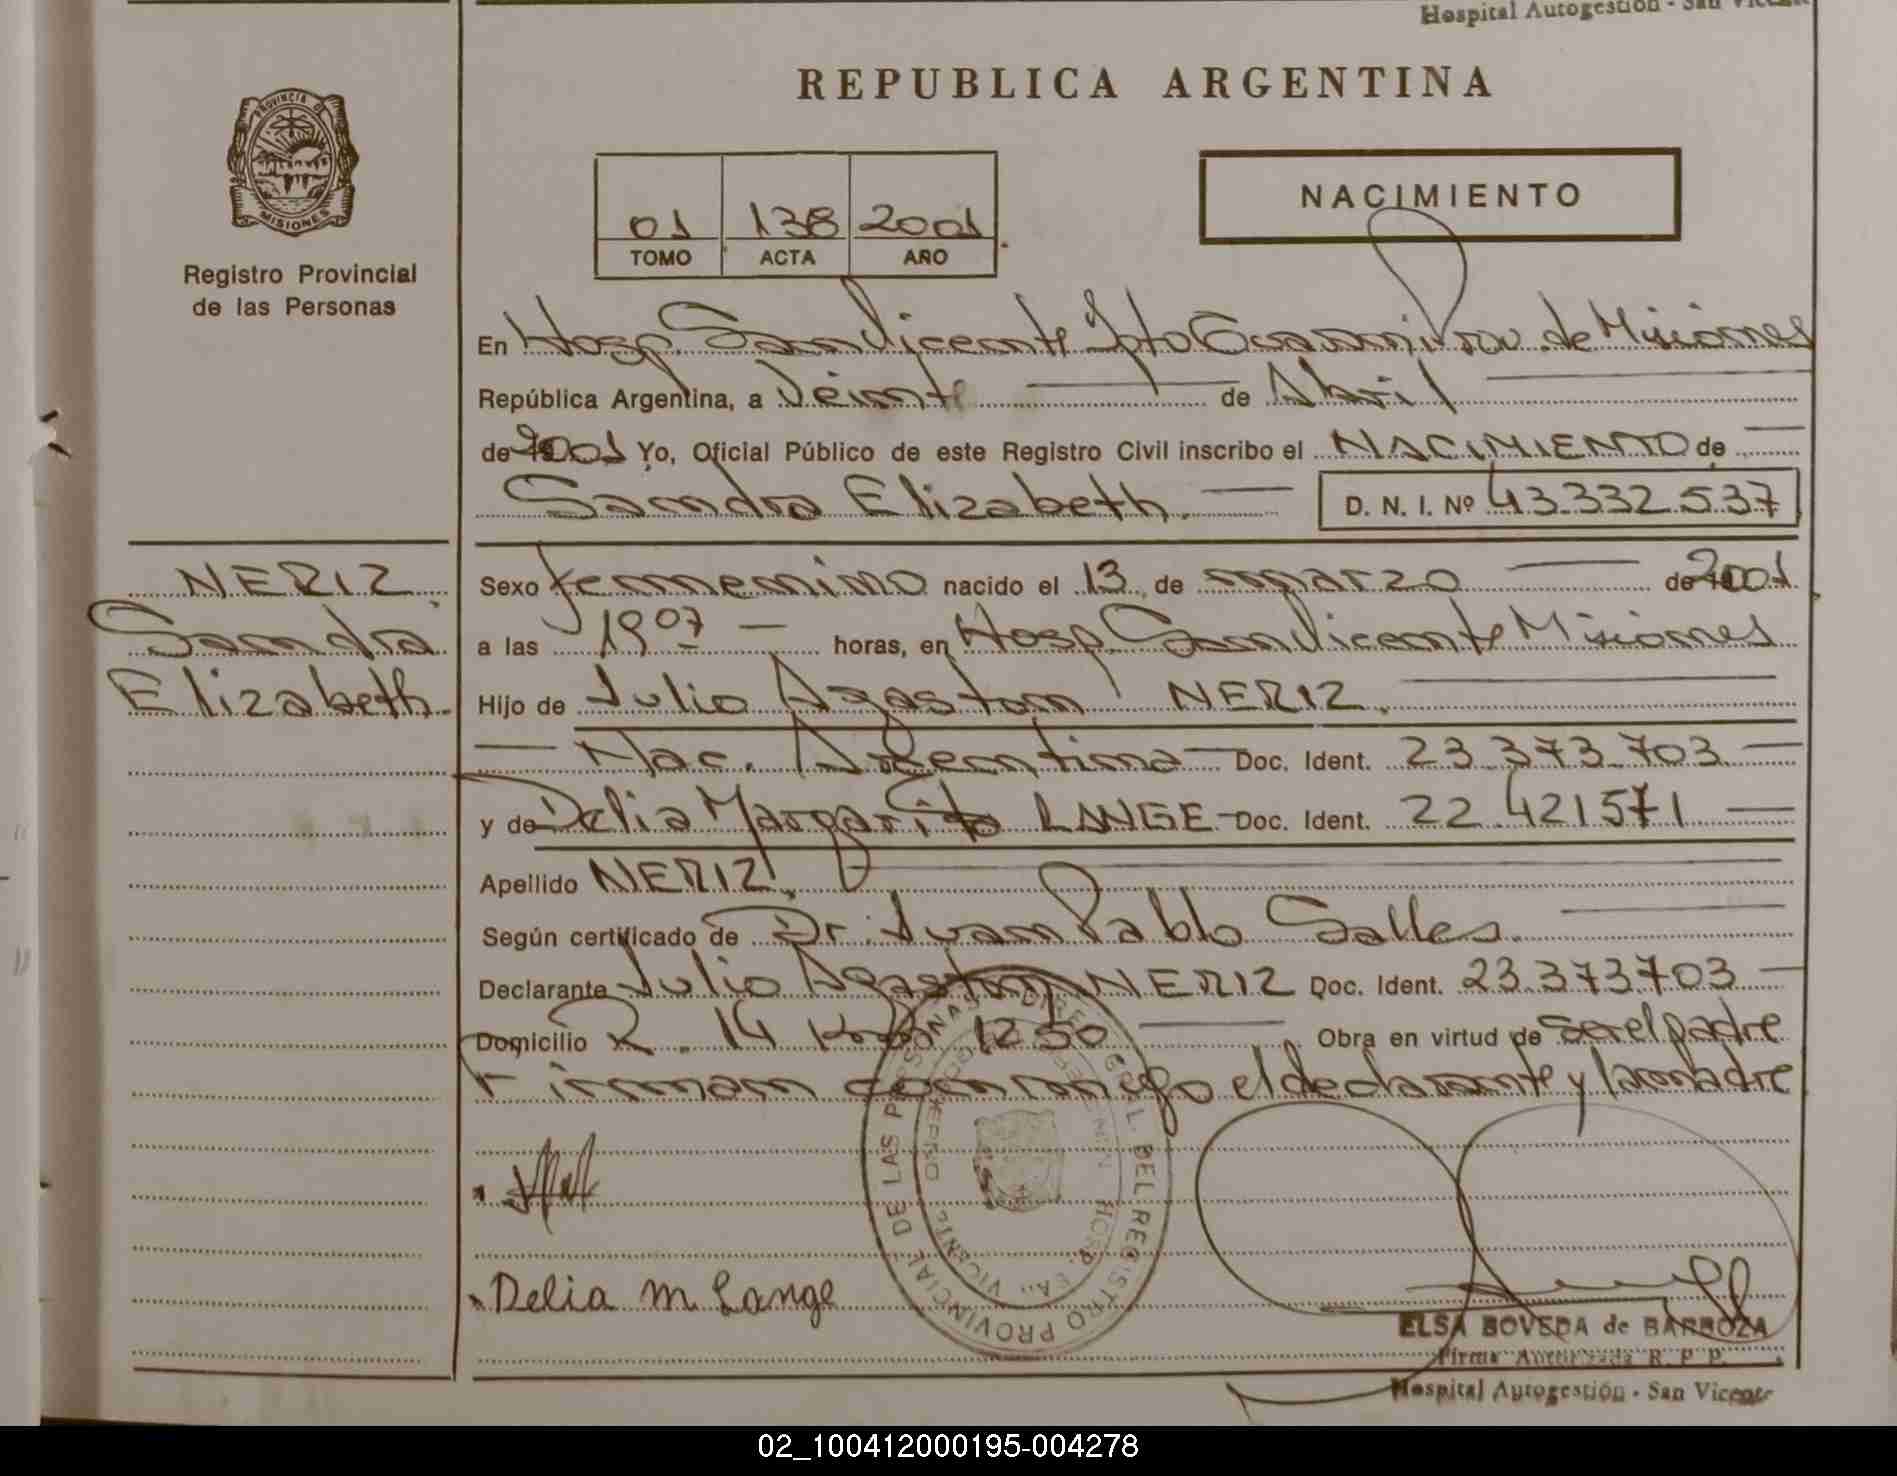 Hospital Autogestión - San Vicente
REPUBLICA ARGENTINA
PROVINCIA DE
MISIONES
Registro Provincial
de las Personas
NACIMIENTO
01 138 2001
TOMO ACTA AÑO
En Hosp. San Vicente Dpto Guaraní Prov. de Misiones
República Argentina, a Veinte de Abril
de 2001 Yo, Oficial Público de este Registro Civil inscribo el NACIMIENTO de
Sandra Elizabeth. D. N. I. Nº 43.332.537
NERIZ
Sandra
Elizabeth.
Sexo femenino nacido el 13 de marzo de 2001
a las 19 07 horas, en Hosp. San Vicente Misiones
Hijo de Julio Agaston NERIZ.
Nac. Argentina Doc. Ident. 23.373.703
y de Delia Margarita LANGE Doc. Ident. 22.421571
Apellido NERIZ.
Según certificado de Dr. Juan Pablo Salles.
Declarante Julio Agaston NERIZ Doc. Ident. 23.373.703
Domicilio R. 14 1250 Obra en virtud de ser el padre
Firman conmigo el declarante y la madre
DIREC. GRAL. DEL REGISTRO PROVINCIAL DE LAS PERSONAS
Delia M Lange
ELSA BOVEDA de BARBOZA
Firma Autorizada R. P. P.
Hospital Autogestión - San Vicente
02_100412000195-004278